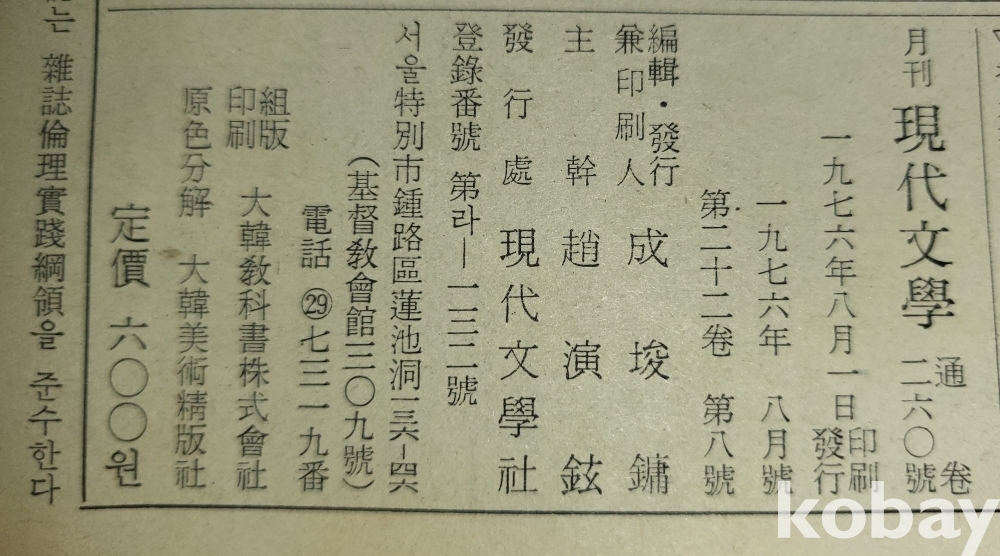 月刊 現代文學 通卷 二六〇號
一九七六年八月一日 印刷 發行
一九七六年 八月號
第二十二卷 第八號
編輯・發行 兼印刷人 成埈鏞
主幹 趙演鉉
發行處 現代文學社
登錄番號 第라—一三二號
서울特別市鍾路區蓮池洞一三六–四六
(基督敎會館三〇九號)
電話 ㉙七三一九番
組版 印刷 大韓敎科書株式會社
原色分解 大韓美術精版社
定價 六〇〇원
는 雜誌倫理實踐綱領을 준수한다
kobay